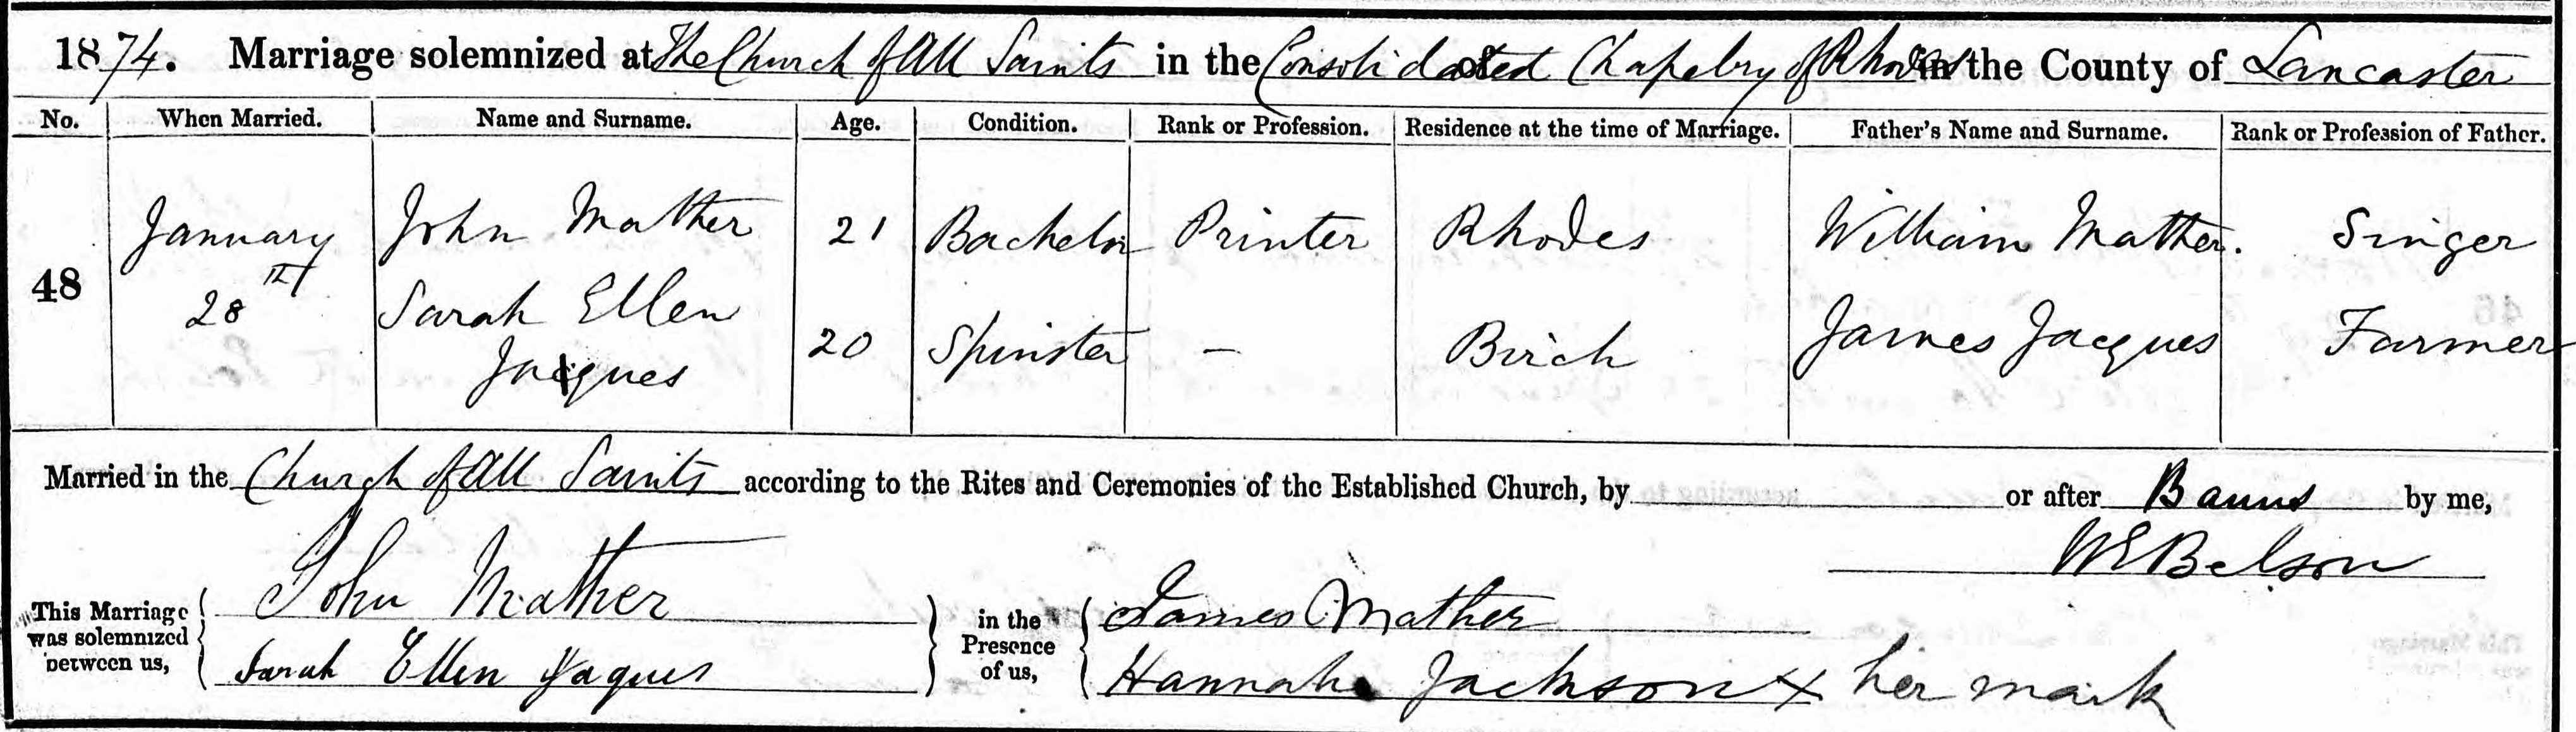 1874. Marriage solemnized at The Church of All Saints in the Consolidated Chapelry of Rhodes in the County of Lancaster
No. When Married. Name and Surname. Age. Condition. Rank or Profession. Residence at the time of Marriage. Father's Name and Surname. Rank or Profession of Father.
48
January 28th
John Mather 21 Bachelor Printer Rhodes William Mather. Singer
Sarah Ellen Jacques 20 Spinster - Birch James Jacques Farmer
Married in the Church of All Saints according to the Rites and Ceremonies of the Established Church, by or after Banns by me,
W E Belson
This Marriage was solemnized between us,
John Mather
Sarah Ellen Jaques
in the Presence of us,
James Mather
Hannah Jackson x her mark